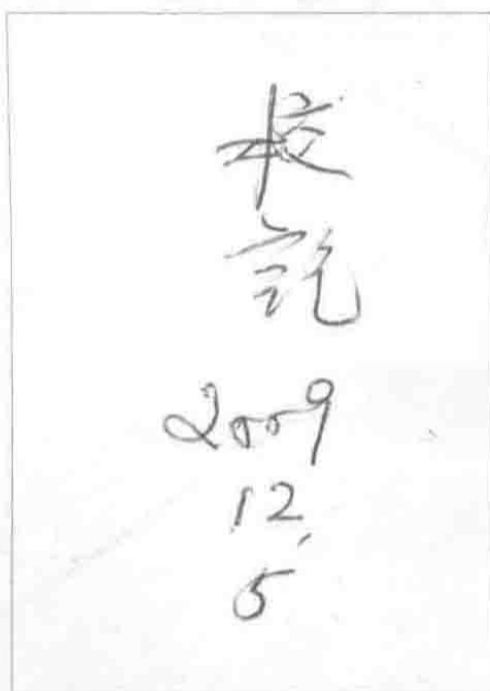 校
訖
2009
12.
5